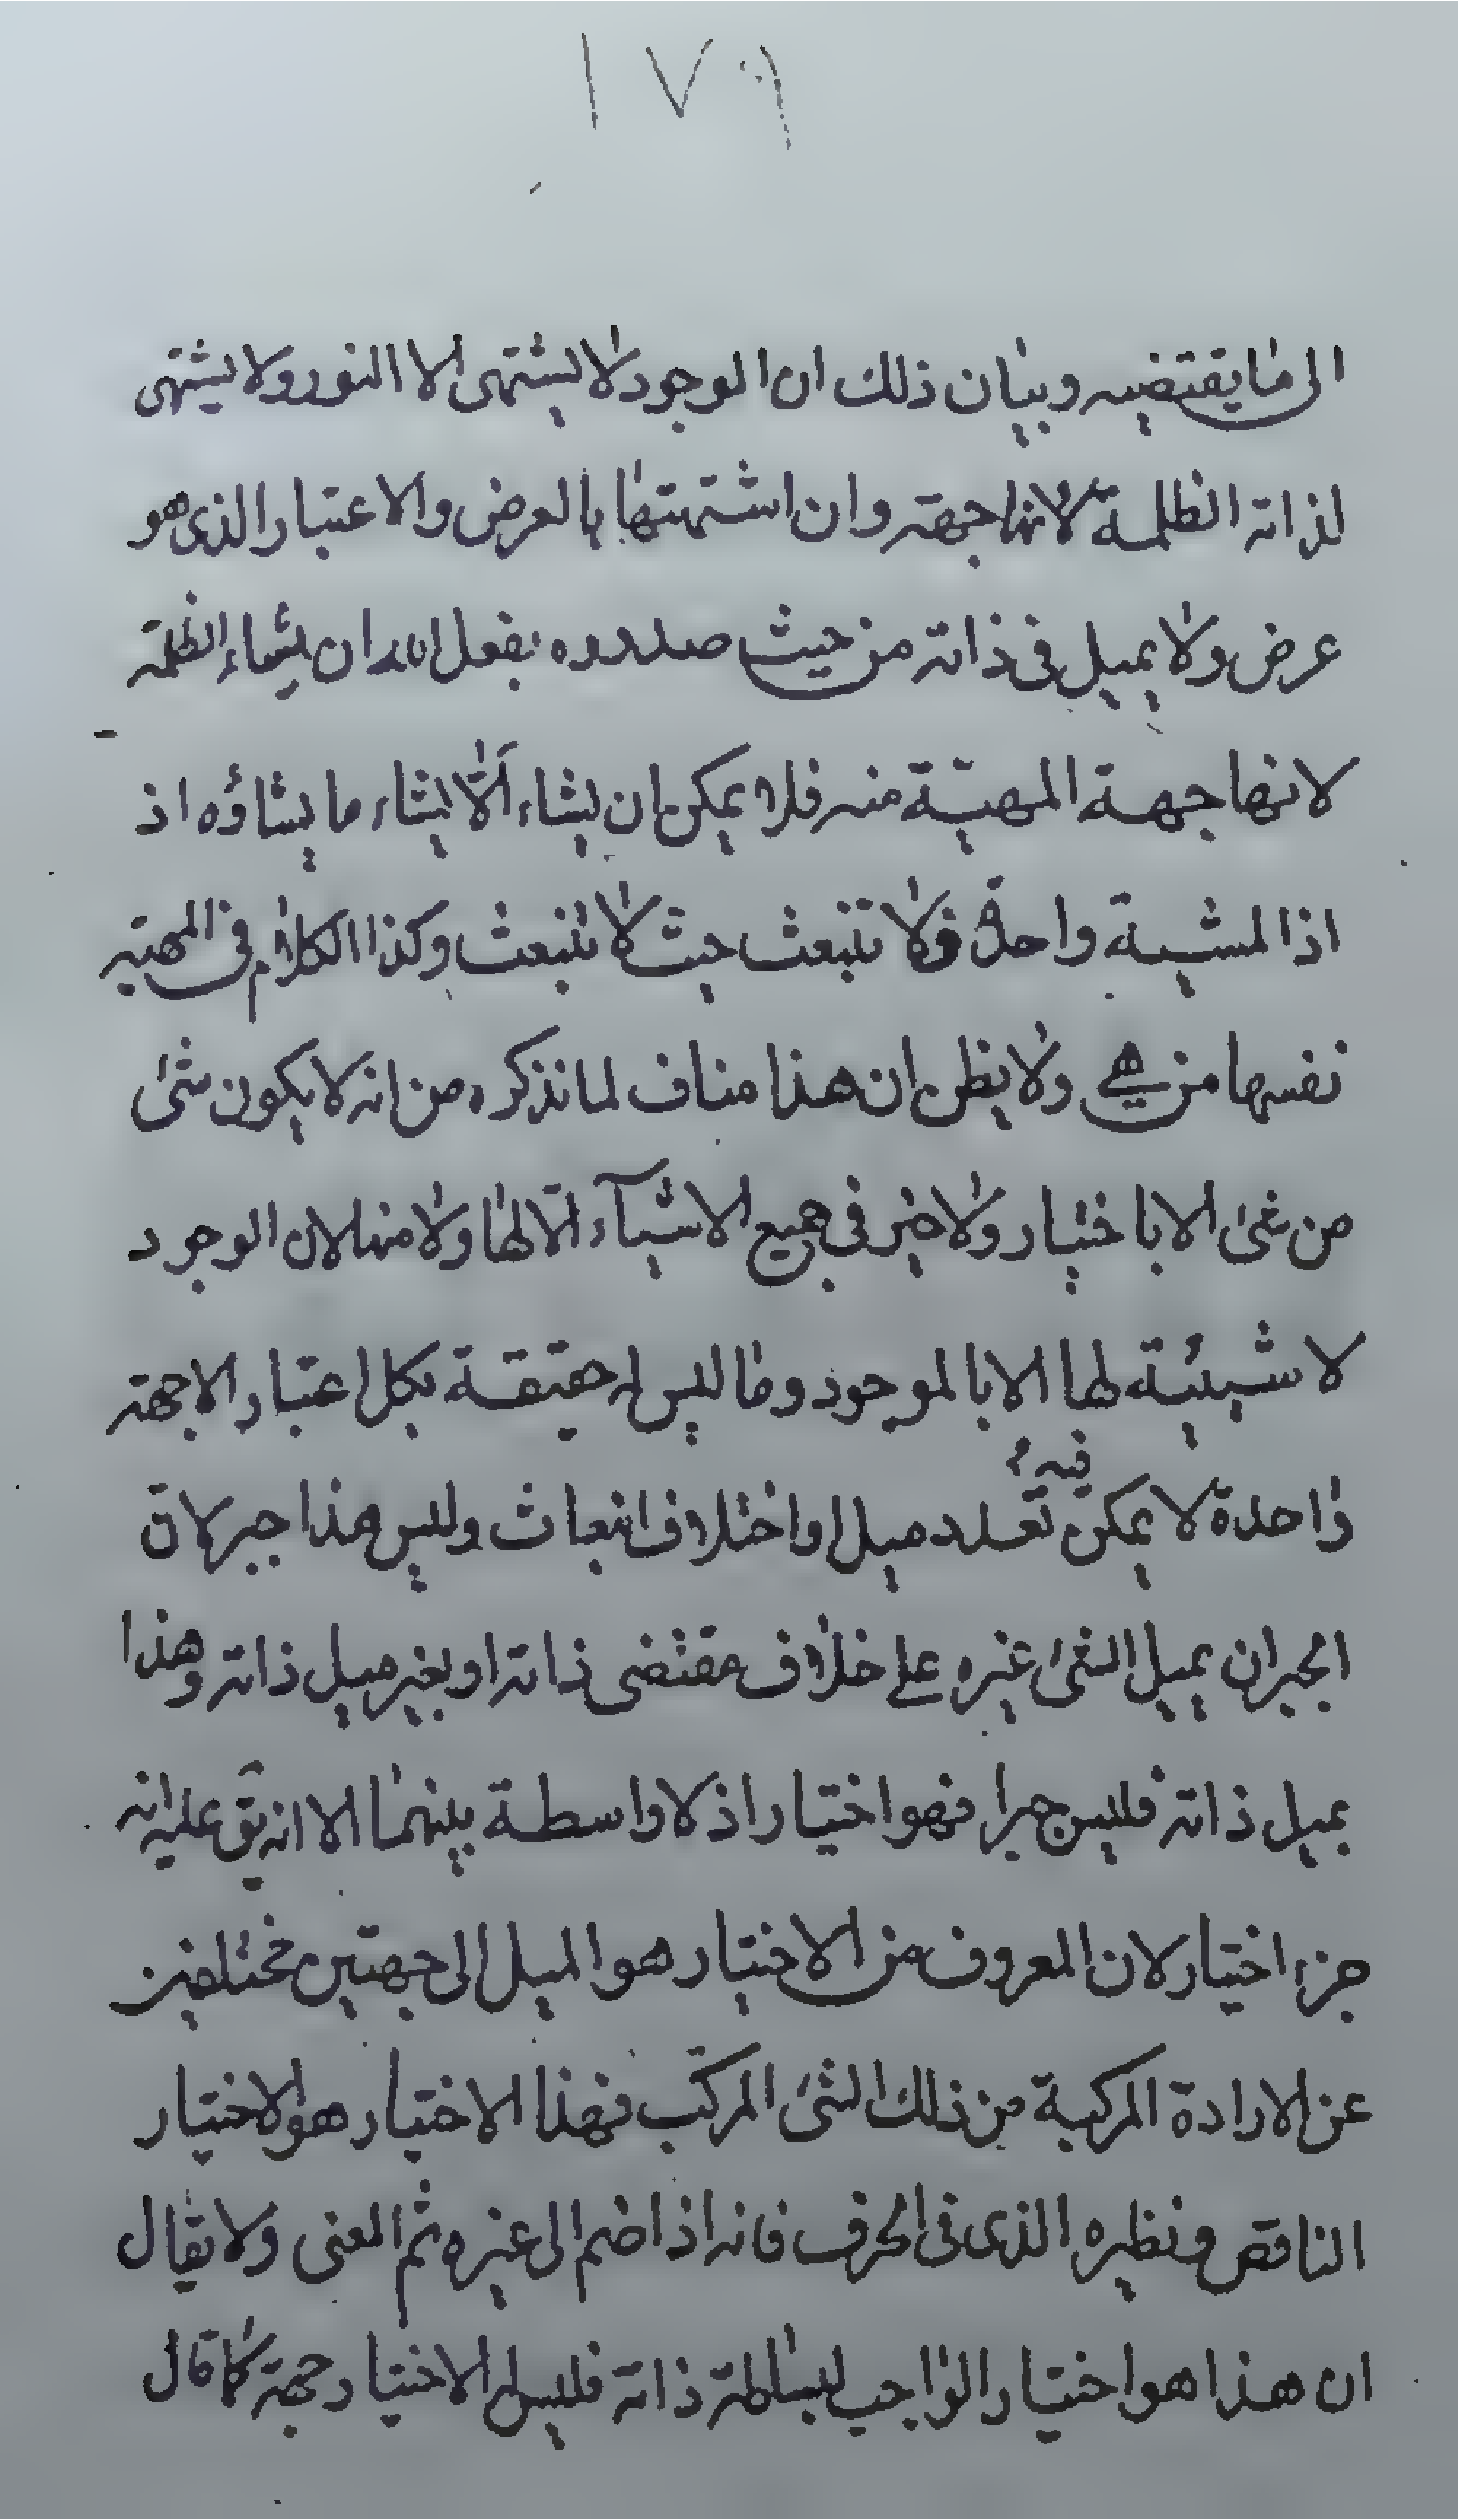 ١٧٩
الى ما يقتضيه وبيان ذلك ان الوجود لا يشتهى الا النور ولا يشتهى
لذاته الظلمة لانها جهته وان اشتهتها بالعرض والاعتبار الذى هو
عرض ولا يميل فى ذاته من حيث صدوره بفعل الله ان يشاء الظلمة
لانها جهة المهيّة منه فلا يمكن ان يشاء الّا يشاء ما يشاؤه اذ
اذ المشية واحدة فلا تنبعث حيث لا تنبعث وكذا الكلام فى المهيّه
نفسها من هى ولا يظن ان هذا مناف لما نذكره من انه لا يكون شئ
من شئ الا باختيار ولا جبر فى جميع الاشيآء الّا لها ولا منها لان الوجود
لا شيئيّة لها الا بالموجود وما ليس له حقيقة بكل اعتبار الا جهة
واحدة لا يمكن فيه تعدد ميل او اختلاف انبعاث وليس هذا جبر لان
الجبر ان يميل الشئ غيره على خلاف مقتضى ذاته او بغير ميل ذاته وهذا
بميل ذاته فليس جبرا فهو اختيار اذ لا واسطة بينهما الا انه يق عليه انه
جزء اختيار لان المعروف من الاختيار هو الميل الى جهتين مختلفين
عن الارادة المركبة من ذلك الشئ المركّب فهذا الاختيار هو الاختيار
الناقص ونظيره الذى فى الحرف فانه اذا ضم الى غيره تم المعنى ولا يقال
ان هذا هو اختيار الواجب لبساطة ذاته فليس له الا اختيار جهة كما قال